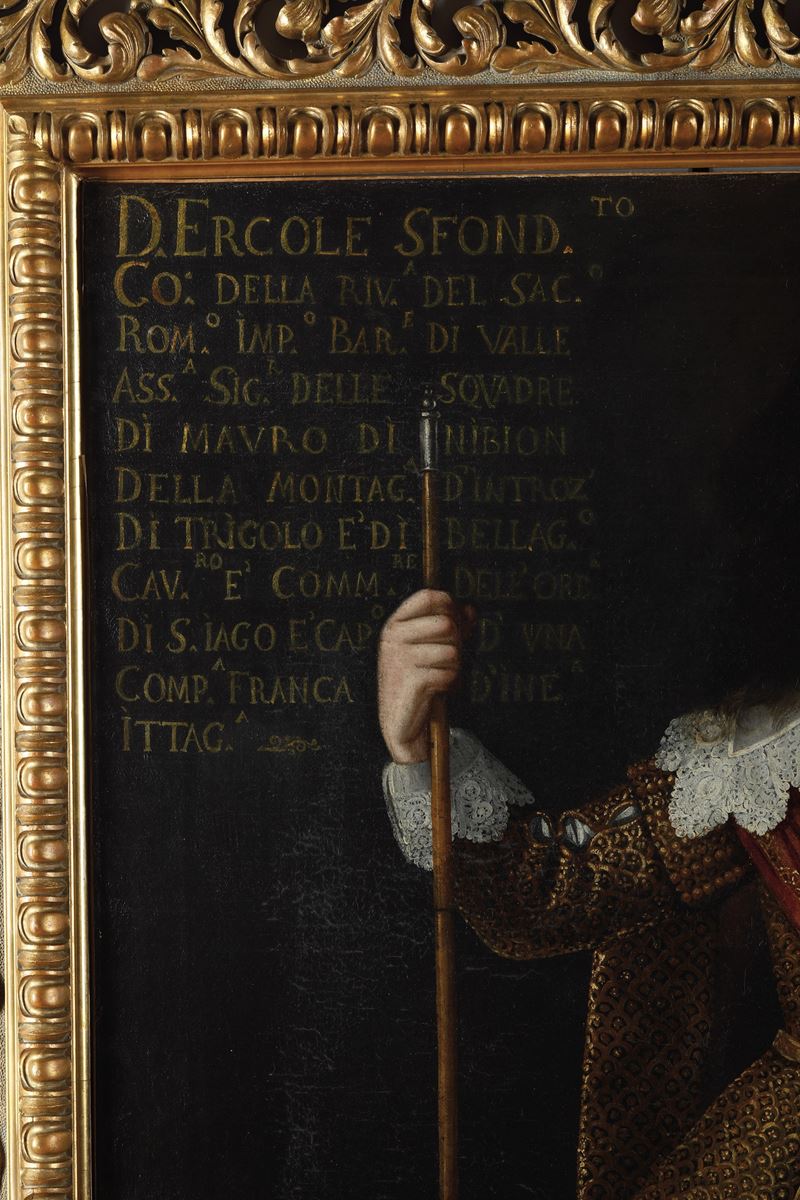 D. ERCOLE SFOND.TO
CO: DELLA RIV.A DEL SAC.O
ROM.O ÌMP.O BAR.E DI VALLE
ASS.A SIG.R DELLE SQVADRE
DÌ MAVRO DÌ NÌBION
DELLA MONTAG.A D'INTROZ'
DÌ TRÌGOLO E' DÌ BELLAG.O
CAV.RO E' COMM.RE DELL'ORD.
DÌ S. ÌAGO E' CAP.O D' VNA
COMP.A FRANCA D'ÌNE.A
ÌTTAG.A